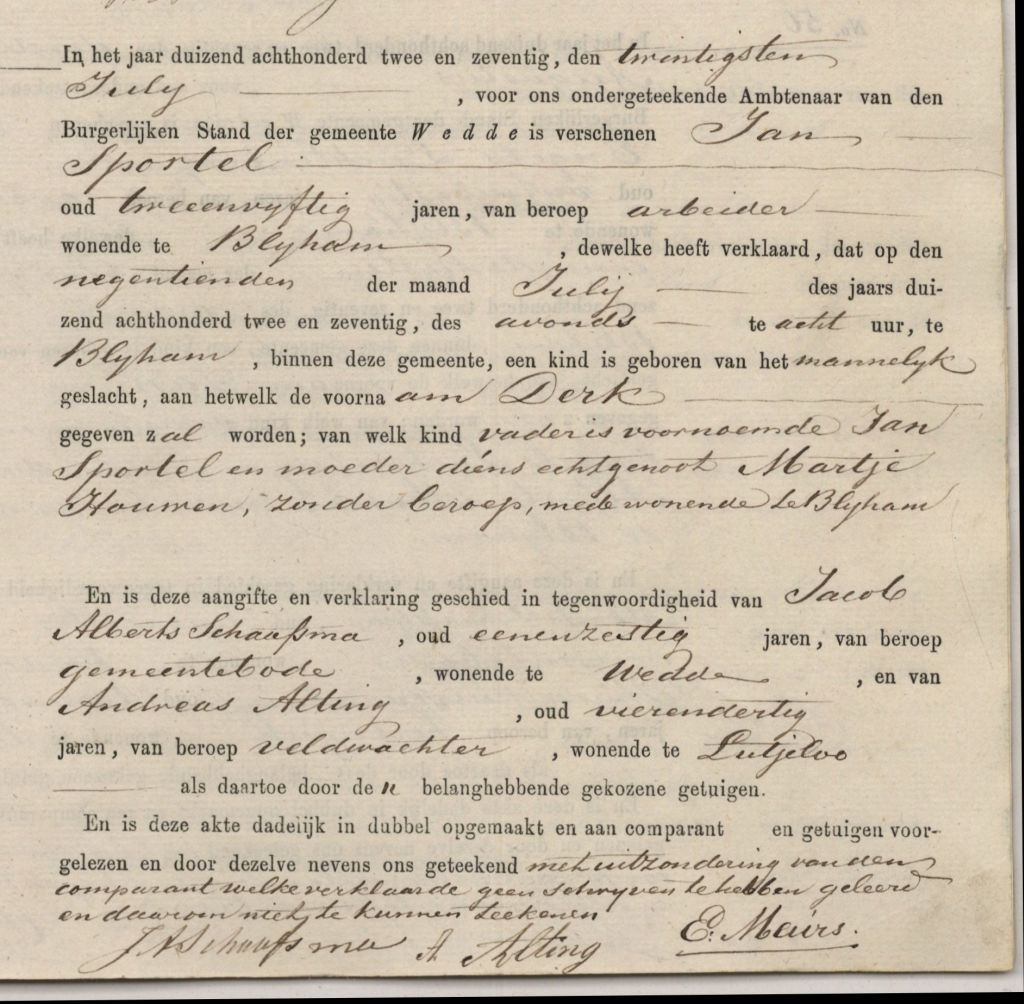 In het jaar duizend achthonderd twee en zeventig, den twintigsten
July , voor ons ondergeteekende Ambtenaar van den
Burgerlijken Stand der gemeente Wedde is verschenen Jan
Sportel
oud tweeenvyftig jaren, van beroep arbeider
wonende te Blyham , dewelke heeft verklaard, dat op den
negentienden der maand July des jaars dui-
zend achthonderd twee en zeventig, des avonds te acht uur, te
Blyham , binnen deze gemeente, een kind is geboren van het mannelyk
geslacht, aan hetwelk de voornaam Derk
gegeven zal worden; van welk kind vader is voornoemde Jan
Sportel en moeder diéns echtgenoot Martje
Houwen, zonder beroep, mede wonende te Blyham
En is deze aangifte en verklaring geschied in tegenwoordigheid van Jacob
Alberts Schaafsma , oud eenenzestig jaren, van beroep
gemeentebode , wonende te Wedde , en van
Andreas Alting , oud vierendertig
jaren, van beroep veldwachter , wonende te Lutjeloo
als daartoe door de n belanghebbende gekozene getuigen.
En is deze akte dadelijk in dubbel opgemaakt en aan comparant en getuigen voor-
gelezen en door dezelve nevens ons geteekend met uitzondering van den
comparant welke verklaarde geen schryven te hebben geleerd
en daarom niet te kunnen teekenen
JASchaafsma A Alting E. Meurs.